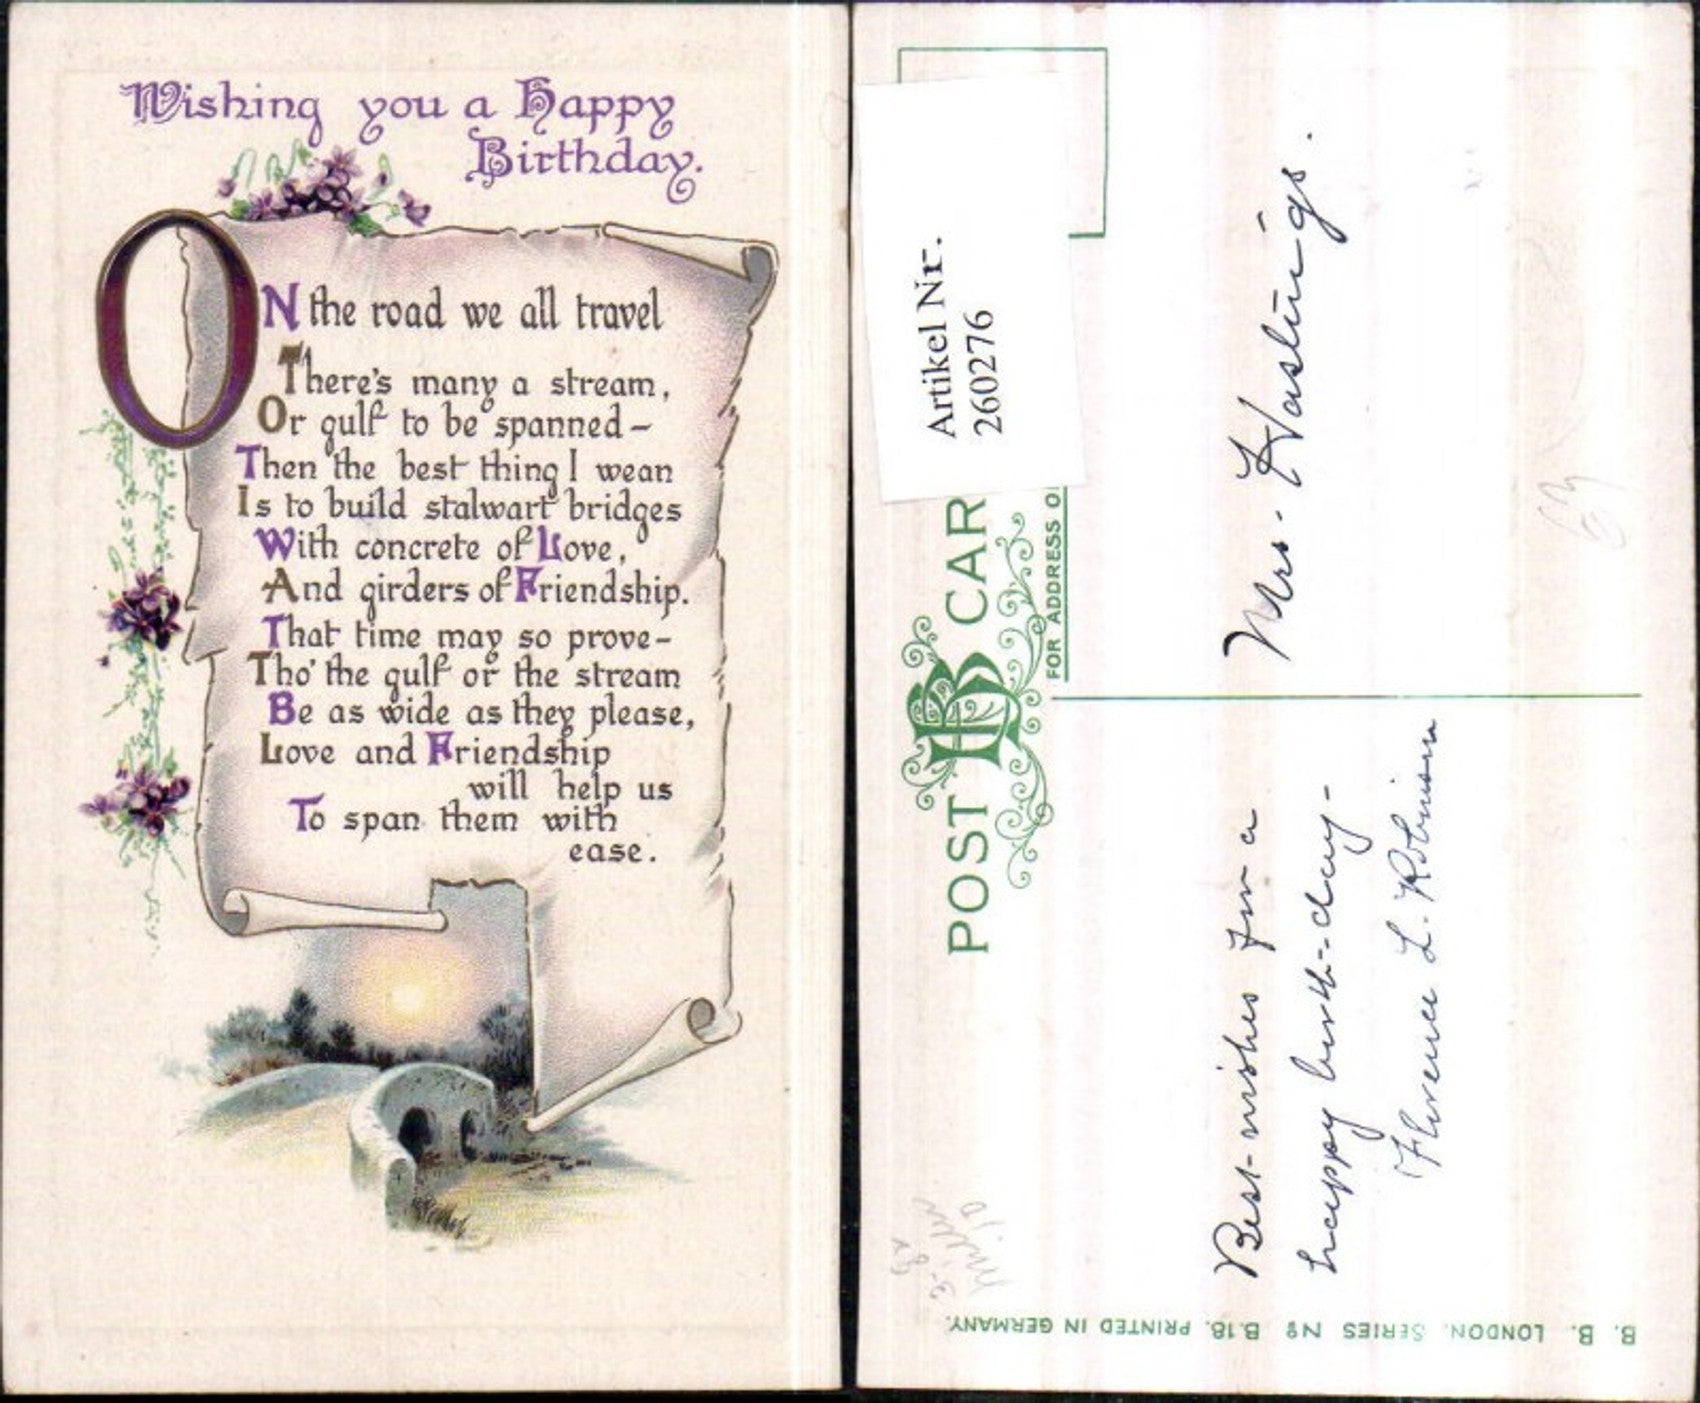 Wishing you a Happy
Birthday.
ON the road we all travel
There's many a stream,
Or gulf to be spanned–
Then the best thing I wean
Is to build stalwart bridges
With concrete of Love,
And girders of Friendship.
That time may so prove–
Tho' the gulf or the stream
Be as wide as they please,
Love and Friendship
will help us
To span them with
ease.
Artikel Nr.
260276
POST BB CAR
FOR ADDRESS O
Mrs. Hastings.
Best-wishes for a
happy birth-day-
Florence L. Robinson
B. B. LONDON. SERIES Nº B.18. PRINTED IN GERMANY.